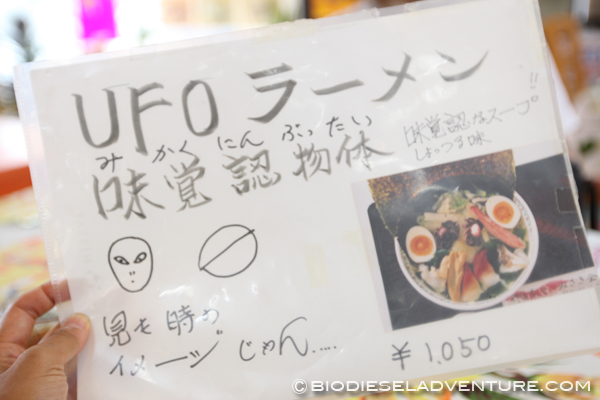 UFO ラーメン
みかくにんぶったい
味覚認物体
味覚認なスープ!!
しょっつる味
見も時の
イメージじゃん.....
¥1,050
© BIODIESELADVENTURE.COM